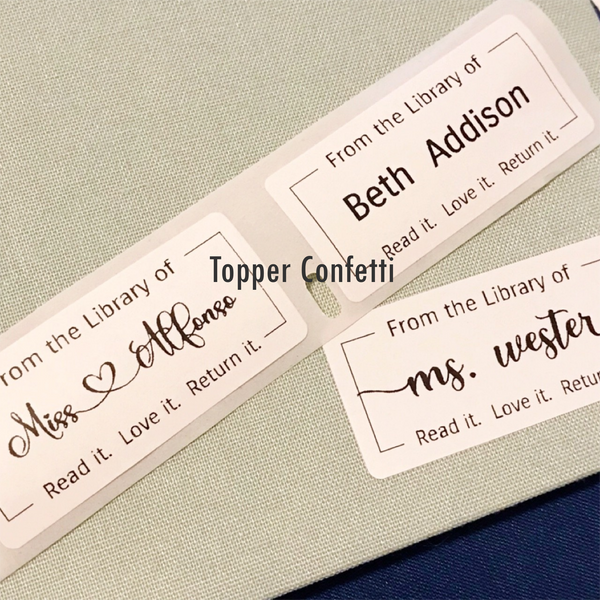 From the Library of
Beth Addison
Read it. Love it. Return it.
Topper Confetti
rom the Library of
Miss Alfonso
Read it. Love it. Return it.
From the Library of
ms. wester
Read it. Love it. Retur